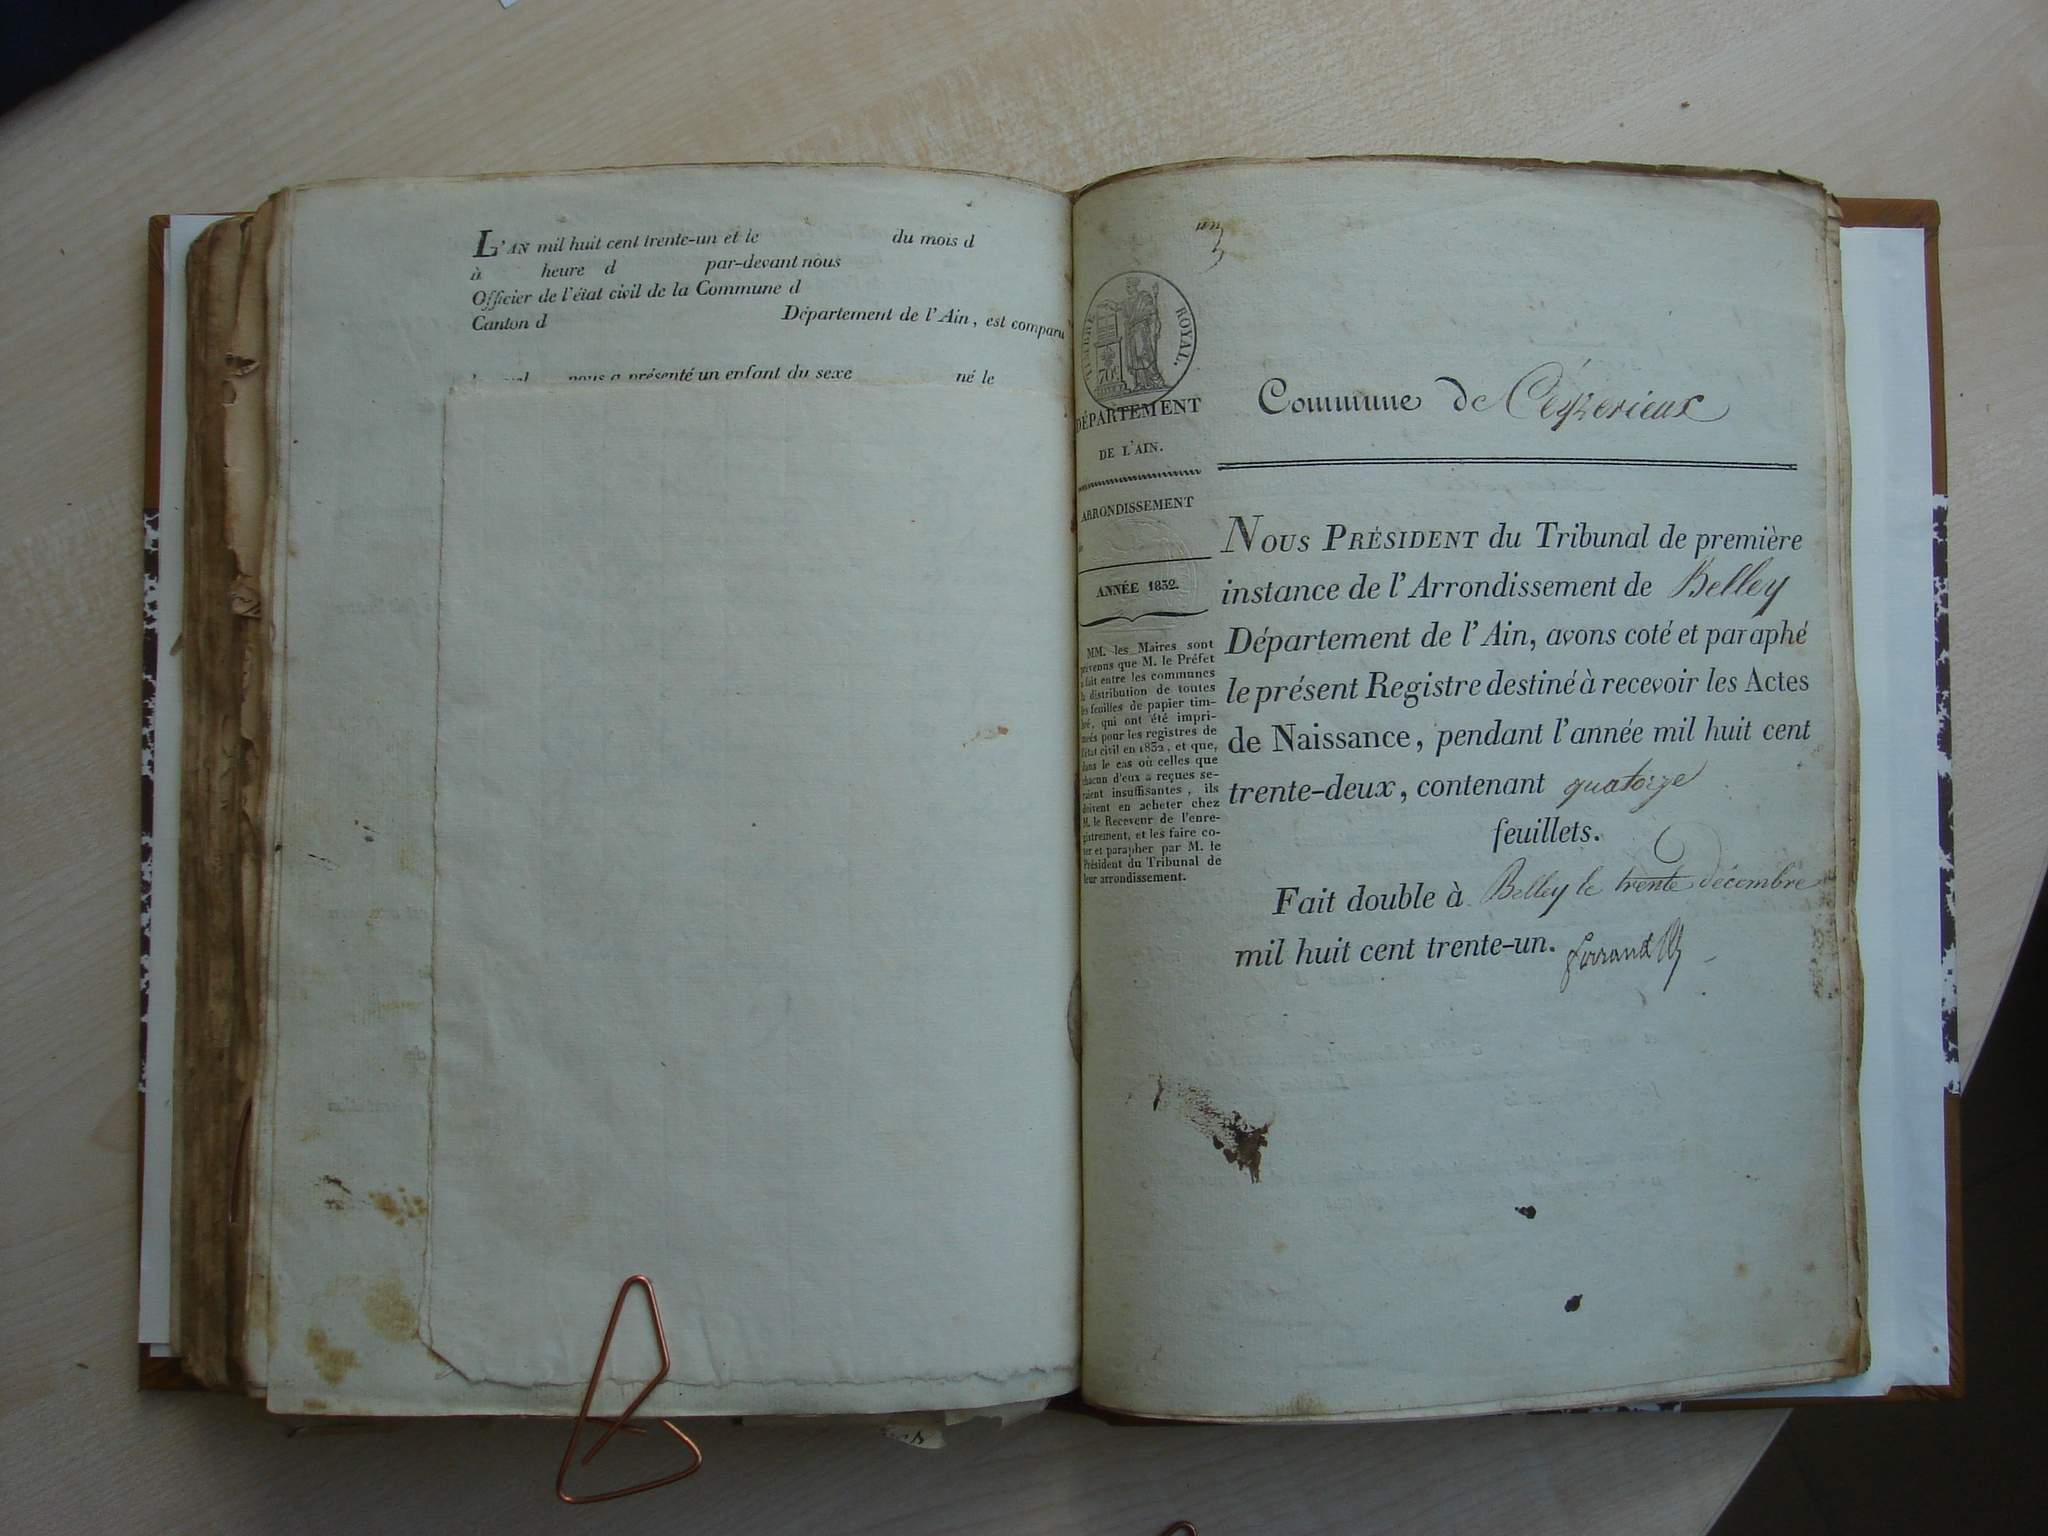 L'AN mil huit cent trente-un et le du mois d
à heure d par-devant nous
Officier de l'état civil de la Commune d
Canton d Département de l'Ain, est comparu
nous a présenté un enfant du sexe né le
un
TIMBRE ROYAL.
70
DÉPARTEMENT
DE L'AIN.
ARRONDISSEMENT
ANNÉE 1832.
MM. les Maires sont
prévenus que M. le Préfet
a fait entre les communes
la distribution de toutes
les feuilles de papier tim-
bré, qui ont été impri-
mées pour les registres de
l'état civil en 1832, et que,
dans le cas où celles que
chacun d'eux a reçues se-
raient insuffisantes, ils
doivent en acheter chez
M. le Receveur de l'enre-
gistrement, et les faire co-
ter et parapher par M. le
Président du Tribunal de
leur arrondissement.
Commune de Ceyzerieux
NOUS PRÉSIDENT du Tribunal de première
instance de l'Arrondissement de Belley
Département de l'Ain, avons coté et paraphé
le présent Registre destiné à recevoir les Actes
de Naissance, pendant l'année mil huit cent
trente-deux, contenant quatorze
feuillets.
Fait double à Belley le trente décembre
mil huit cent trente-un.